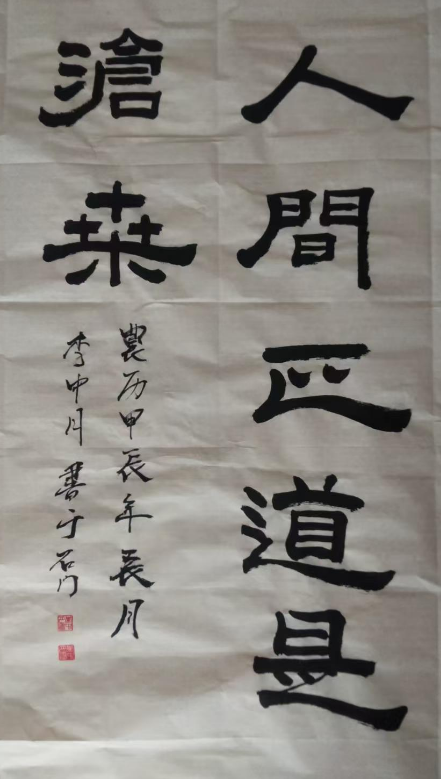 人間正道是
滄桒
農历甲辰年辰月
李中月書于石门